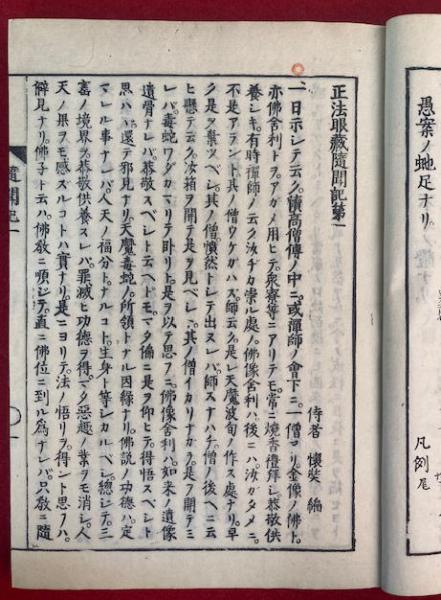 愚案ノ蛇足ナリ
凡例尾
正法眼藏隨聞記第一
侍者 懷奘 編
一日示シテ云ク續高僧傳ノ中ニ或禪師ノ會下ニ一僧アリ金像ノ佛ト
亦佛舍利トヲアガメ用ヒテ衆寮等ニアリテモ常ニ燒香禮拜シ恭敬供
養シキ有時禪師ノ云ク汝ヂガ崇ル處ノ佛像舍利ハ後ニハ汝ガタメニ
不是アラント其ノ僧ウケガハズ師云ク是レ天魔波旬ノ作ス處ナリ早
ク是ヲ棄ツベシ其ノ僧憤然トシテ出ヌレバ師スナハチ僧ノ後ヘニ云
ヒ懸テ云ク汝箱ヲ開テ是ヲ見ベシ其ノ僧イカリナガラ是ヲ開テミ
レバ毒蛇ワダカマリテ臥リ是ヲ以テ思フニ佛像舍利ハ如來ノ遺像
遺骨ナレバ恭敬スベシト云ヘドモマタ偏ニ是ヲ仰ヒテ得悟スベシト
思ハヾ還テ邪見ナリ天魔毒蛇ノ所領トナル因緣ナリ佛說ノ功德ハ定
マレル事ナレバ人天ノ福分トナルコト生身ト等シカルベシ總シテ三
寶ノ境界ヲ恭敬供養スレバ罪滅ヒ功德ヲ得マタ惡趣ノ業ヲモ消シ人
天ノ果ヲモ感ズルコトハ實ナリ是ニヨリテ法ノ悟リヲ得ント思フハ
僻見ナリ佛子ト云ハ佛敎ニ順シテ直ニ佛位ニ到ル爲ナレバ只敎ニ隨
隨聞記一